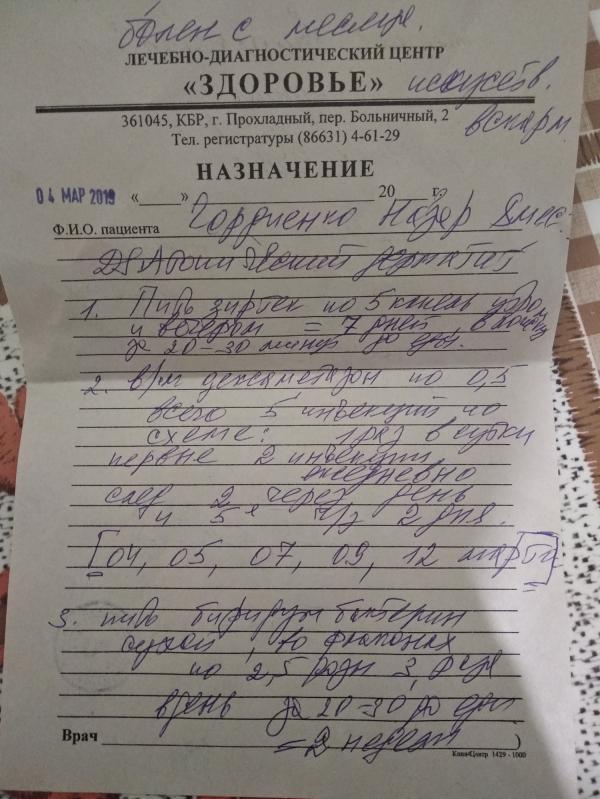 болен с месяца.
ЛЕЧЕБНО-ДИАГНОСТИЧЕСКИЙ ЦЕНТР
«ЗДОРОВЬЕ» искусств.
вскарм
361045, КБР, г. Прохладный, пер. Больничный, 2
Тел. регистратуры (86631) 4-61-29
НАЗНАЧЕНИЕ
04 МАР 2019 «___» 20 г.
Ф.И.О. пациента Гордиенко Назар 8мес.
DS Атопический дерматит
1. Пить зиртек по 5 капель утром
и вечером = 7 дней,
за 20-30 минут до еды.
2. в/м дексаметазон по 0,5
всего 5 инъекций по
схеме: 1 раз в сутки
первые 2 инъекции
ежедневно
след 2 через день
и 5я ч/з 2 дня.
[04, 05, 07, 09, 12 марта]
3. пить бифидумбактерин
сухой, во флаконах
по 2,5 дозы 3 раза
в день за 20-30 до еды
Врач = 2 недели )
КмвЦентр 1429 - 1000